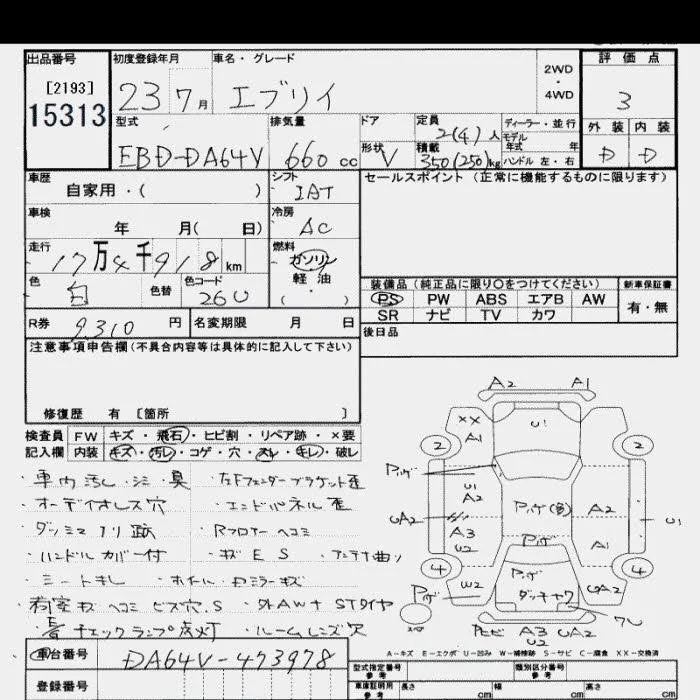 出品番号 初度登録年月 車名・グレード 評価点
[2193] 2WD・4WD
15313 23 7月 エブリイ 3
型式 排気量 ドア 定員 2(4)人 ディーラー・並行 外装 内装
モデル年式 年
EBD-DA64V 660cc 形状 V 積載 350(250)kg ハンドル 左・右 D D
車歴 シフト セールスポイント(正常に機能するものに限ります)
自家用・( ) IAT
車検 冷房
年 月( 日) AC
走行 燃料
17万4千918km ガソリン
色 色替 色コード 軽油
白 26U ( ・ ) 装備品(純正品に限り○をつけてください) 新車保証書
PS PW ABS エアB AW 有・無
R券 9310円 名変期限 月 日 SR ナビ TV カワ
注意事項申告欄(不具合内容等は具体的に記入して下さい) 後日品
修復歴 有 [箇所 ]
検査員 FW キズ・飛石・ヒビ割・リペア跡・×要
記入欄 内装 キズ・汚レ・コゲ・穴・スレ・キレ・破レ
A2 A1
XX A1 U1
2 2
・車内汚レ・シミ・臭 ・左Fフェンダーブラケット歪
・オーディオレス穴 ・エンドパネル歪
・ダッシュ ノリ跡 ・Rフロアーヘコミ
・ハンドルカバー付 ・キズES ・アンテナ曲り
・シートキレ ・ホイール・ドアミラーキズ
・荷室キズヘコミビス穴.S ・外AW+STタイヤ
・チェックランプ点灯 ・ルームレンズ欠
U1
A2
UA2 A2 U1
A3
U2 A1
4 4
W2 UA2
A3 UA2
U2
A-キズ E-エクボ U-凹み W-補修跡 S-サビ C-腐食 XX-交換済
車台番号 DA64V-473978
登録番号
型式指定番号 参考 類別区分番号 参考
車庫証明用 参考 長さ cm 幅 cm 高さ cm